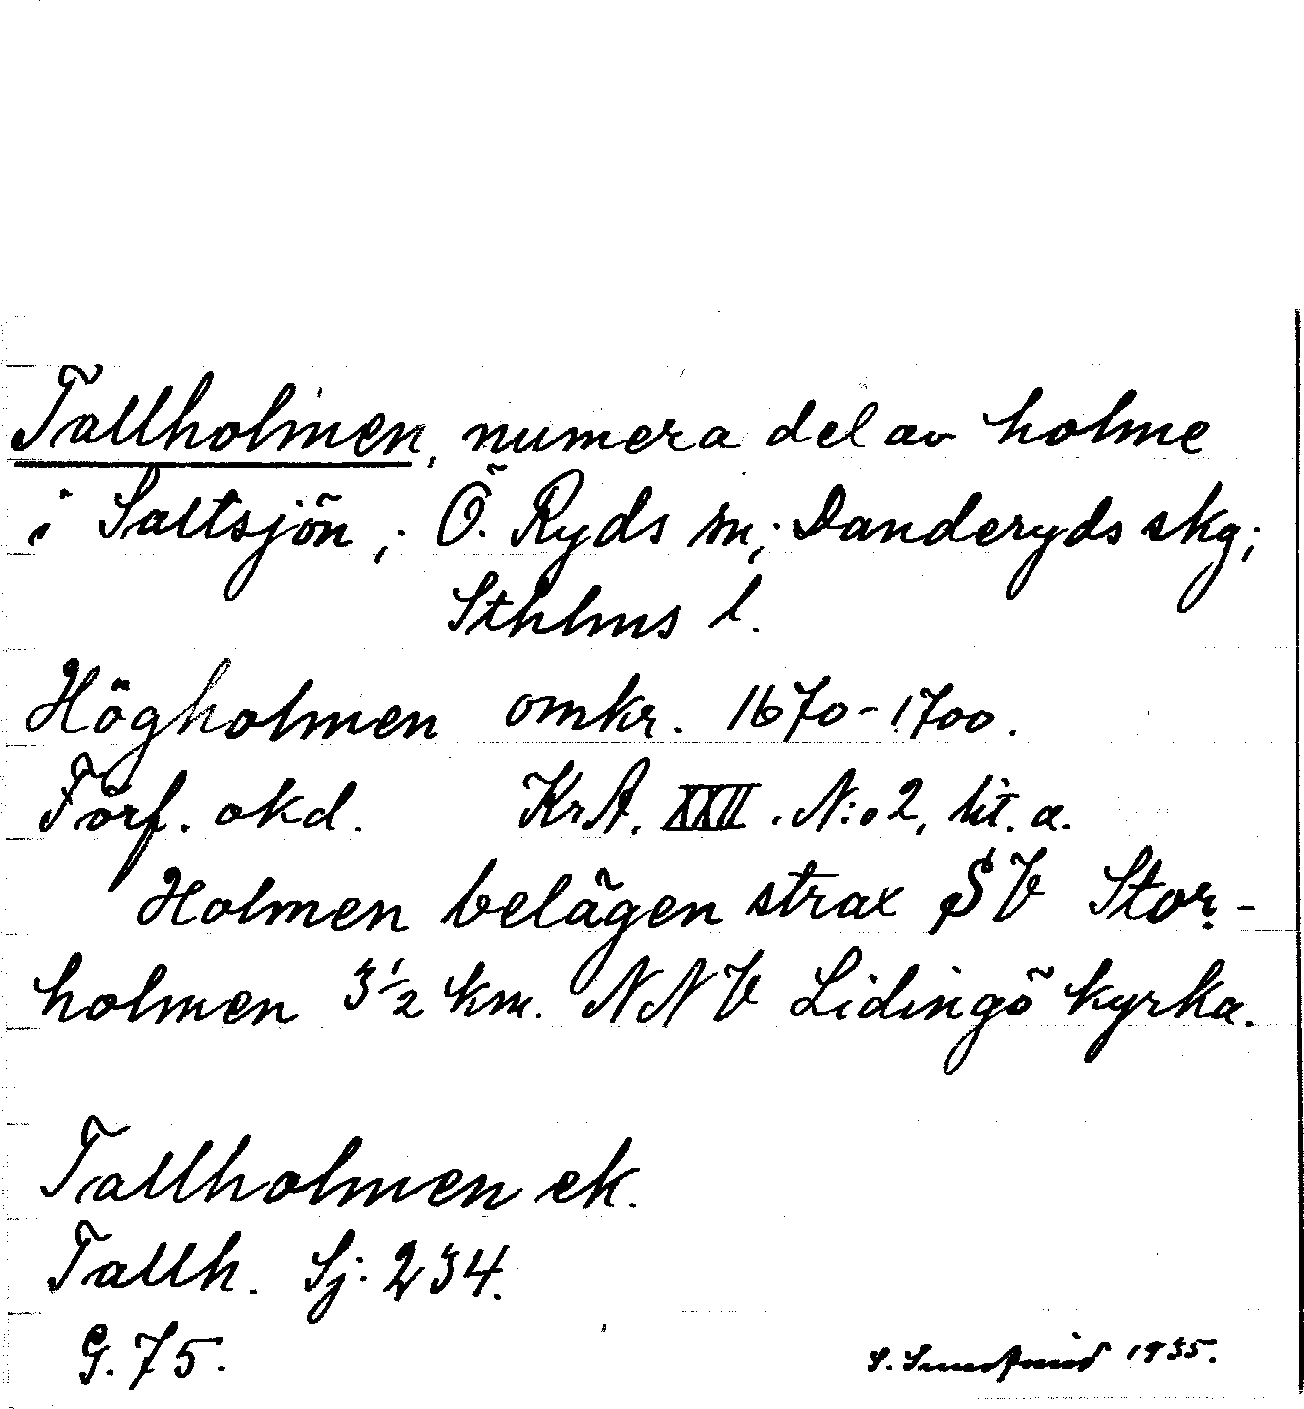 Tallholmen, numera del av holme
i Saltsjön,; Ö. Ryds sn; Danderyds skg;
Sthlms l.
Högholmen omkr. 1670-1700.
Förf. okd. KrA. XXII. N:o 2, lit. a.
Holmen belägen strax SV Stor-
holmen 3 1/2 km. NNV Lidingö kyrka.
Tallholmen ek.
Tallh. Sj: 234.
G. 75.
1935.